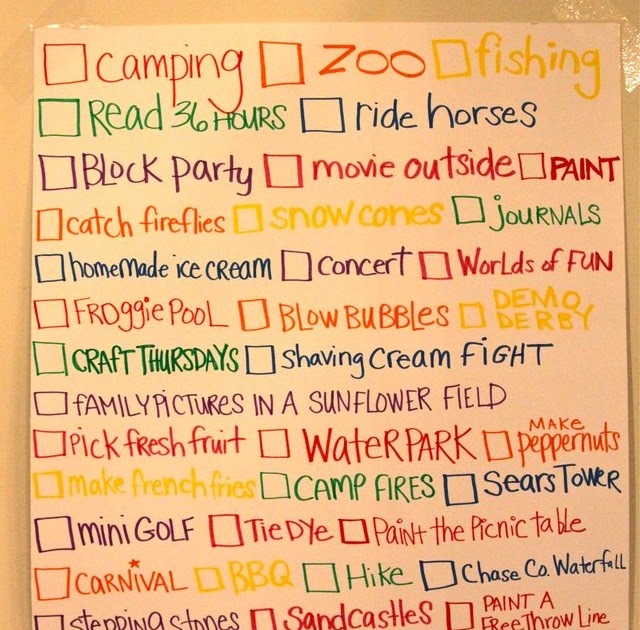 camping ZOO fishing
Read 36 HOURS ride horses
BLOCK party movie outside PAINT
catch fireflies snow cones JOURNALS
homemade ice cream concert Worlds of FUN
FROggie POOL BLOW BUBBLES DEMO DERBY
CRAFT THURSDAYS shaving cream FIGHT
fAMILY PICTURES IN A SUNFLOWER FIELD
Pick fresh fruit WateR PARK MAKE peppernuts
make french fries CAMP FIRES Sears Tower
mini GOLF Tie DYe Paint the Picnic table
CARNIVAL BBQ Hike Chase Co. Waterfall
stepping stones Sandcastles PAINT A FRee Throw Line